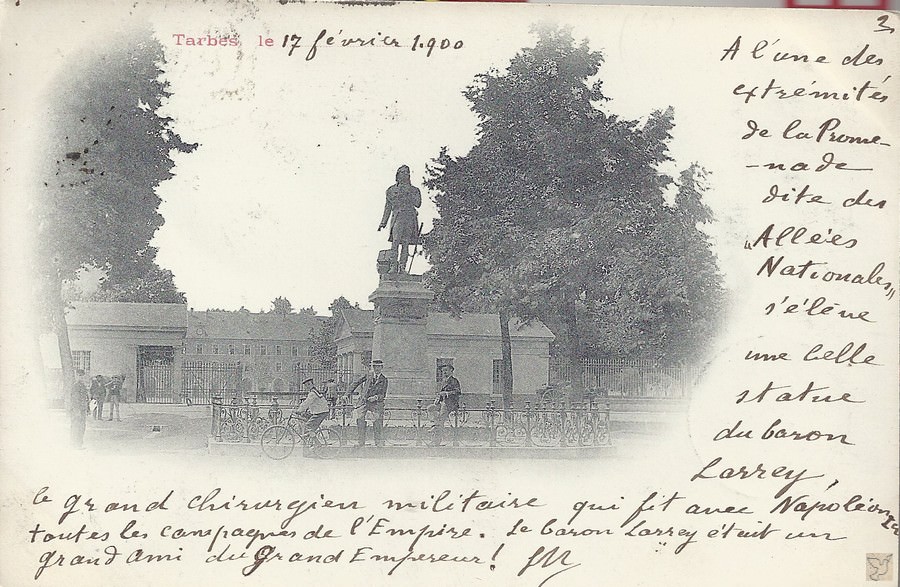 3
Tarbes, le 17 février 1900
A l'une des
extrémités
de la Prome-
-nade
dite des
"Allées
Nationales"
s'élève
une belle
statue
du baron
Larrey,
le grand chirurgien militaire qui fit avec Napoléon Ier
toutes les campagnes de l'Empire. Le baron Larrey était un
grand ami du Grand Empereur!